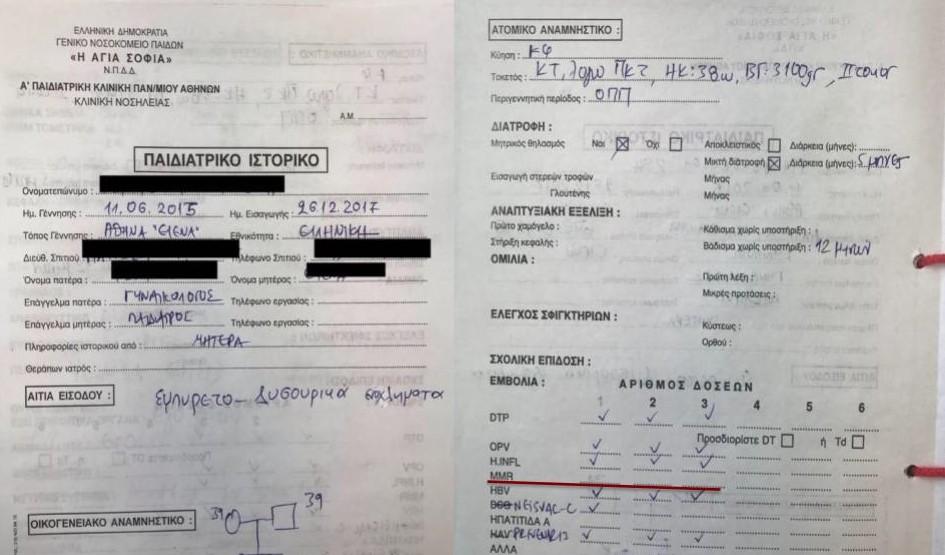 ΕΛΛΗΝΙΚΗ ΔΗΜΟΚΡΑΤΙΑ
ΓΕΝΙΚΟ ΝΟΣΟΚΟΜΕΙΟ ΠΑΙΔΩΝ
«Η ΑΓΙΑ ΣΟΦΙΑ»
Ν.Π.Δ.Δ.
Α' ΠΑΙΔΙΑΤΡΙΚΗ ΚΛΙΝΙΚΗ ΠΑΝ/ΜΙΟΥ ΑΘΗΝΩΝ
ΚΛΙΝΙΚΗ ΝΟΣΗΛΕΙΑΣ
Α.Μ
ΠΑΙΔΙΑΤΡΙΚΟ ΙΣΤΟΡΙΚΟ
Ονοματεπώνυμο :
Ημ. Γέννησης : 11.06.2015 Ημ. Εισαγωγής : 26.12.2017
Τόπος Γέννησης : ΑΘΗΝΑ "ΕΛΕΝΑ" Εθνικότητα : ΕΛΛΗΝΙΚΗ
Διεύθ. Σπιτιού Τηλέφωνο Σπιτιού :
Όνομα πατέρα : Όνομα μητέρας :
Επάγγελμα πατέρα : ΓΥΝΑΙΚΟΛΟΓΟΣ Τηλέφωνο εργασίας :
Επάγγελμα μητέρας : ΠΑΙΔΙΑΤΡΟΣ Τηλέφωνο εργασίας :
Πληροφορίες ιστορικού από : ΜΗΤΕΡΑ
Θεράπων ιατρός :
ΑΙΤΙΑ ΕΙΣΟΔΟΥ : Εμπύρετο - Δυσουρικά ενοχλήματα
39 39
ΟΙΚΟΓΕΝΕΙΑΚΟ ΑΝΑΜΝΗΣΤΙΚΟ :
ΑΤΟΜΙΚΟ ΑΝΑΜΝΗΣΤΙΚΟ :
Κύηση : κφ
Τοκετός : ΚΤ, λόγω ΠΚΤ, ΗΚ:38w, ΒΓ:3100gr,
Περιγεννητική περίοδος : ΟΠΠ
ΔΙΑΤΡΟΦΗ :
Μητρικός θηλασμός Ναι Όχι Αποκλειστικός Διάρκεια (μήνες):
Μικτή διατροφή Διάρκεια (μήνες): 5 μήνες
Εισαγωγή στερεών τροφών Μήνας
Γλουτένης Μήνας
ΑΝΑΠΤΥΞΙΑΚΗ ΕΞΕΛΙΞΗ :
Πρώτο χαμόγελο : Κάθισμα χωρίς υποστήριξη :
Στήριξη κεφαλής : Βάδισμα χωρίς υποστήριξη : 12 μηνών
ΟΜΙΛΙΑ :
Πρώτη λέξη :
Μικρές προτάσεις :
ΕΛΕΓΧΟΣ ΣΦΙΓΚΤΗΡΙΩΝ :
Κύστεως :
Ορθού :
ΣΧΟΛΙΚΗ ΕΠΙΔΟΣΗ :
ΕΜΒΟΛΙΑ : ΑΡΙΘΜΟΣ ΔΟΣΕΩΝ
1 2 3 4 5 6
DTP ✓ ✓ ✓
Προσδιορίστε DT ή Td
OPV ✓ ✓ ✓
H.INFL ✓ ✓ ✓
MMR
HBV ✓ ✓ ✓
NEISVAC-C ✓
ΗΠΑΤΙΤΙΔΑ Α
PREVENAR 13 ✓ ✓ ✓
ΑΛΛΑ